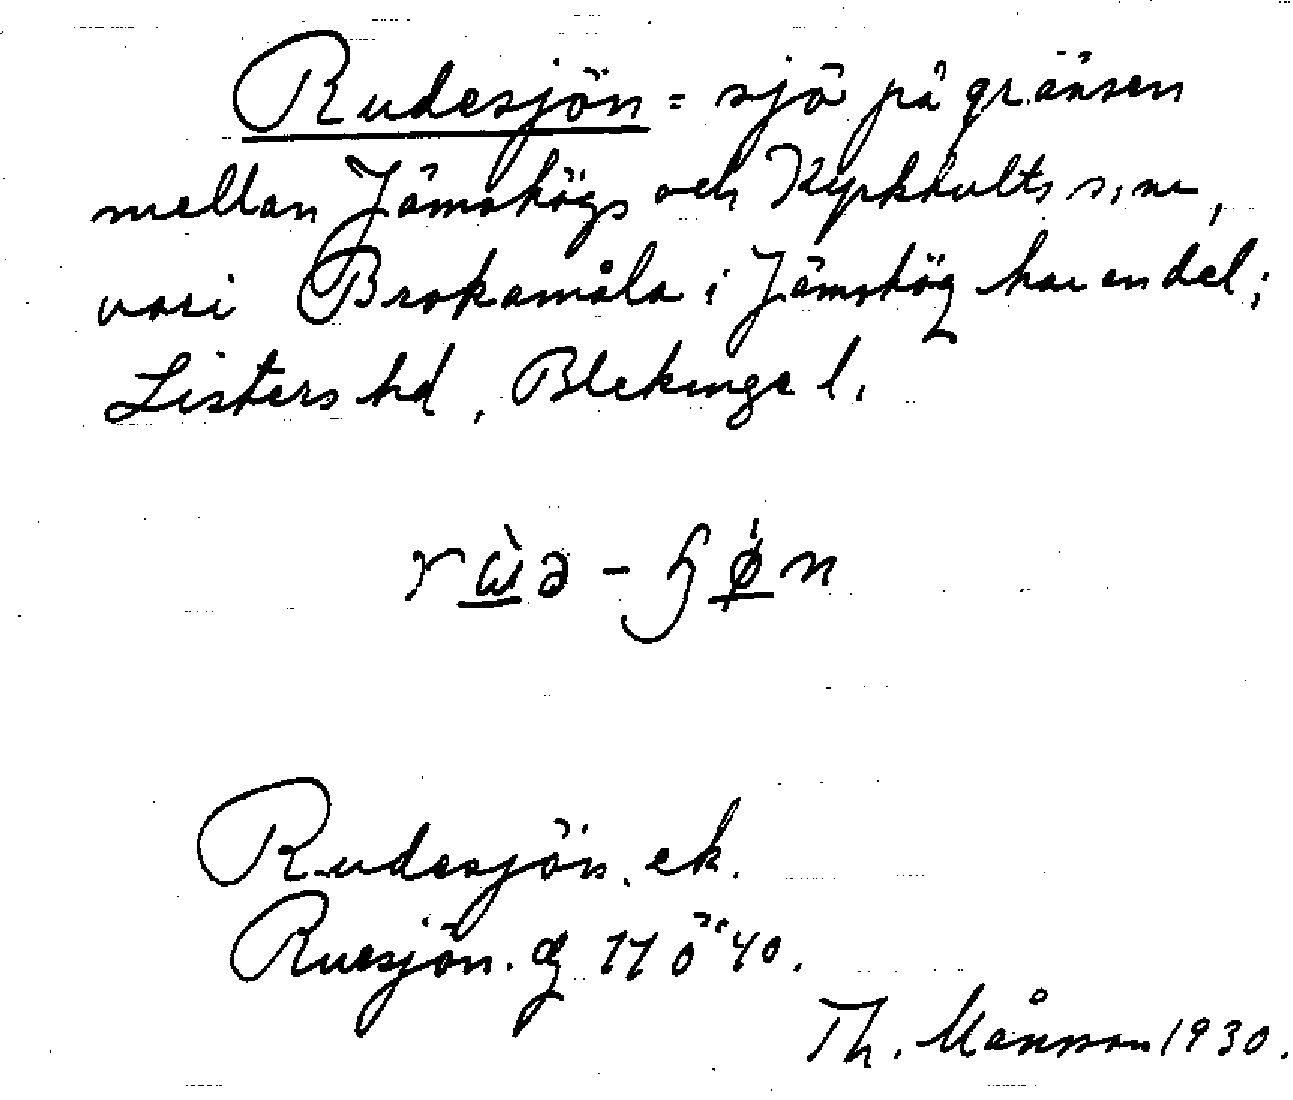 Rudesjön = sjö på gränsen
mellan Jämshögs och Kyrkhults s:nr,
vari Brokamåla i Jämshög har en del;
Listers hd, Blekinge l.
Rudesjön. ek.
Ruesjön. 17 ö 40.
Th. Månsson 1930.